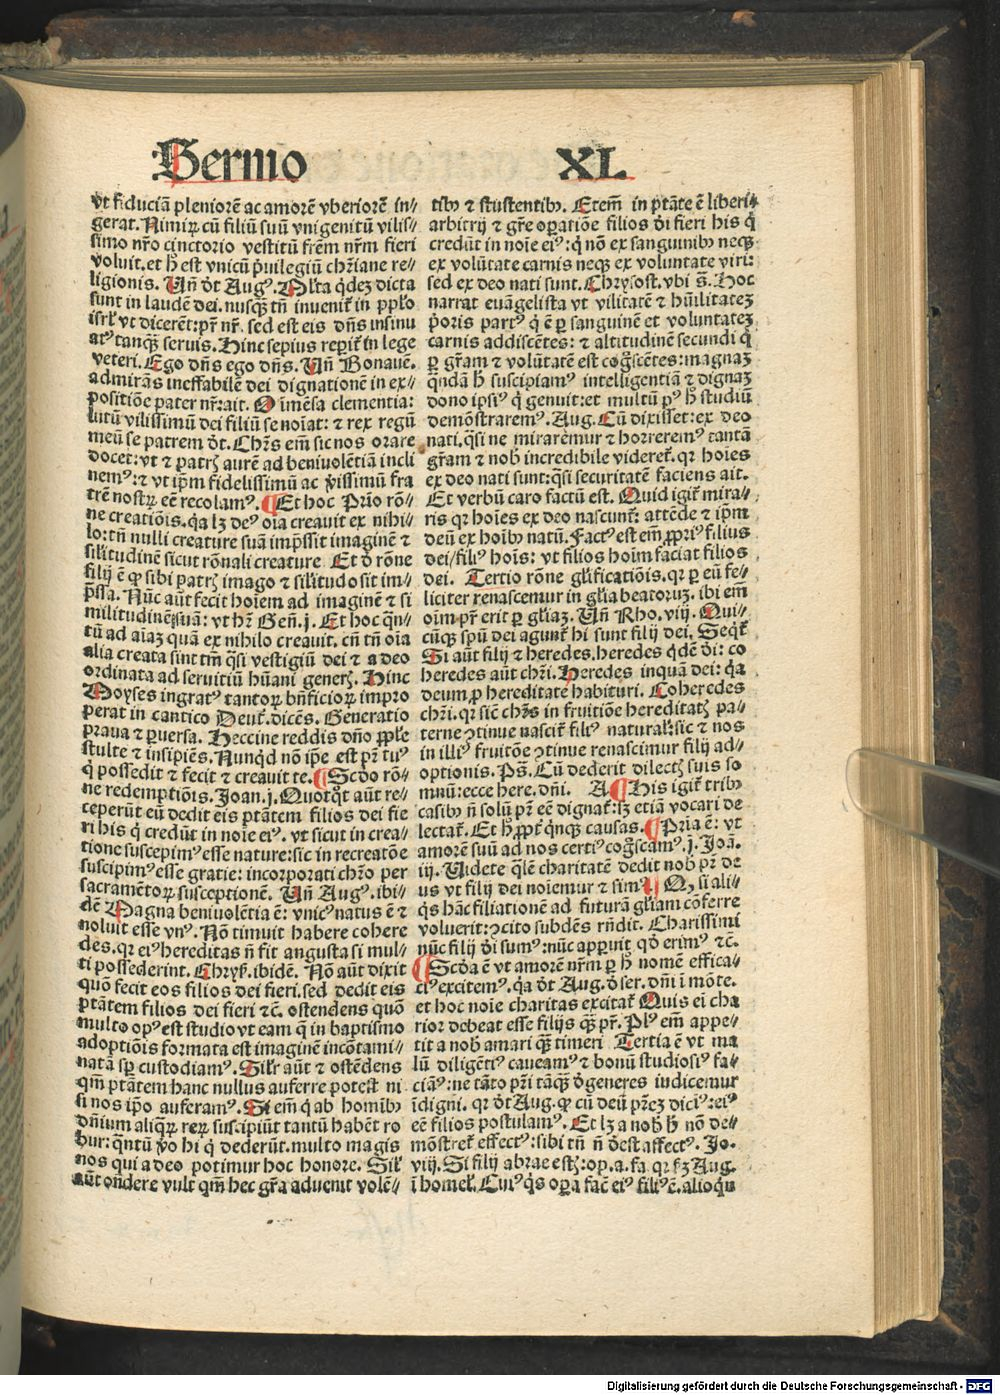 Sermo XL
vt fiduciā pleniorē ac amorē vberiorē in//
gerat. Nimiꝝ cū filiū suū vnigenitū vilis//
simo nr̄o cinctorio vestitū frēm nr̄m fieri
voluit. et h̄ est vnicū p̄uilegiū chr̄iane re//
ligionis. Vn̄ dt̄ Augꝰ. Ml̄ta q̄dez dicta
sunt in laudē dei. nusq̄ꝫ tn̄ inuenit̄ in pp̄lo
isrl̄ vt dicerēt: pr̄ nr̄. sed est eis dn̄s insinu
atꝰ tanq̄ꝫ seruis. Hinc sepius reꝑit̄ in lege
veteri. Ego dn̄s ego dn̄s. Vn̄ Bonaue.
admirās ineffabilē dei dignationē in ex//
positiōe pater nr̄: ait. O īmēsa clementia:
lutū vilissimū dei filiū se noīat: ⁊ rex regū
meū se patrem dt̄. Chr̄s em̄ sic nos orare
docet: vt ⁊ patrꝫ aurē ad beniuolētiā incli
nemꝰ: ⁊ vt ip̄m fidelissimū ac p̄issimū fra
trē nostꝝ eē recolamꝰ. ¶ Et hoc Prīo rō//
ne creatiōis. q̄a lꝫ deꝰ oīa creauit ex nihi//
lo: tn̄ nulli creature suā imp̄ssit imaginē ⁊
silitudinē sicut rōnali creature Et ō rōne
filij ē ꝙ sibi patrꝫ imago ⁊ silitudo sit im//
p̄ssa. Nūc aūt fecit hoīem ad imaginē ⁊ si
militudinē suā: vt hr̄ Gen̄. j. Et hoc q̄n//
tū ad aīaꝫ quā ex nihilo creauit. cū tn̄ oīa
alia creata sint tm̄ q̄si vestigiū dei ⁊ a deo
ordinata ad seruitiū hūani generꝫ. Hinc
Moyses ingratꝰ tantoꝝ bn̄ficioꝝ impro
perat in cantico Deut̄. dicēs. Generatio
praua ⁊ ꝑuersa. Heccine reddis dn̄o pp̄le
stulte ⁊ insipiēs. Nunqd̄ nō ip̄e est pr̄ tuꝰ
q̄ possedit ⁊ fecit ⁊ creauit te. ¶ Scdo rō//
ne redemptiōis. Joan. j. Quotqt̄ aūt re//
ceperūt eū dedit eis ptātem filios dei fie
ri his q̄ credūt in noīe eiꝰ. vt sicut in crea//
tione suscepimꝰ esse nature: sic in recreatōe
suscipimꝰ esse gratie: incorporati chr̄o per
sacramētoꝝ susceptionē. Vn̄ Augꝰ. ibi//
dē Magna beniuolētia ē: vnicꝰ natus ē ⁊
noluit esse vnꝰ. Nō timuit habere cohere
des. qr eiꝰ hereditas n̄ fit angusta si mul//
ti possederint. Chryſ. ibidē. Nō aūt dixit
quō fecit eos filios dei fieri. sed dedit eis
ptātem filios dei fieri ⁊c̄. ostendens quō
multo opꝰ est studio vt eam q̄ in baptismo
adoptiōis formata est imaginē incōtami//
natā sp̄ custodiamꝰ. Silr̄ aūt ⁊ ostēdens
qm̄ ptātem hanc nullus auferre potest ni
si nos ip̄o auferamꝰ. Si em̄ q̄ ab homībꝰ
dn̄ium aliqꝝ reꝝ suscipiūt tantū habēt ro
bur: q̄ntū v̄o hi q̄ dederūt. multo magis
nos qui a deo potimur hoc honore. Sil̄
aūt on̄dere vult qm̄ hec gr̄a aduenit volē//
tibꝰ ⁊ studentibꝰ. Etem̄ in ptāte ē liberi//
arbitrij ⁊ gr̄e oꝑatiōe filios dī fieri his q̄
credūt in noīe eiꝰ: q̄ nō ex sanguinibꝰ neqꝫ
ex volūtate carnis neqꝫ ex voluntate viri:
sed ex deo nati sunt. Chrysost. vbi s̄. Hoc
narrat euāgelista vt vilitatē ⁊ hūilitateꝫ
p̄oris partꝰ q̄ ē ꝑ sanguinē et voluntateꝫ
carnis addiscētes: ⁊ altitudinē secundi q̄
ꝑ gr̄am ⁊ volūtatē est coḡscētes: magnaꝫ
qn̄dā h̄ suscipiamꝰ intelligentiā ⁊ dignaꝫ
dono ipsiꝰ q̄ genuit: et multū pꝰ h̄ studiū
demōstraremꝰ. Aug. Cū dixisset: ex deo
nati. q̄si ne miraremur ⁊ horreremꝰ tantā
gr̄am ⁊ nob̄ incredibile videret̄. qr hoīes
ex deo nati sunt: q̄si securitatē faciens ait.
Et verbū caro factū est. Quid igit̄ mira//
ris qr hoīes ex deo nascunt̄: attēde ⁊ ip̄m
deū ex hoībꝰ natū. Factꝰ est em̄ ꝓpriꝰ filius
dei/filiꝰ hoīs: vt filios hoīm faciat filios
dei. Tertio rōne gl̄ificatiōis. qr ꝑ eū fe//
liciter renascemur in gl̄ia beatoruꝫ. ibi em̄
oīm pr̄ erit ꝑ gl̄iaꝫ. Vn̄ Rho. viij. Qui//
cūqꝫ spū dei agunt̄ hi sunt filij dei. Seqt̄
Si aūt filij ⁊ heredes. heredes q̄dē dī: co
heredes aūt chr̄i. Heredes inquā dei: q̄a
deum ꝓ hereditate habituri. Coheredes
chr̄i. qr sic̄ chr̄s in fruitiōe hereditatꝫ pa//
terne ꝯtinue nascit̄ filiꝰ natural̄: sic ⁊ nos
in illiꝰ fruitōe ꝯtinue renascimur filij ad//
optionis. Ps̄. Cū dederit dilectꝫ suis so
mnū: ecce here. dn̄i. A ¶ His igit̄ tribꝰ
casibꝰ n̄ solū pr̄ eē dignat̄: lꝫ etiā vocari de
lectat̄. Et h̄ ꝓpt̄ qn̄qꝫ causas. ¶ Prīa ē: vt
amorē suū ad nos certiꝰ coḡscamꝰ. j. Joā.
iij. Videte ql̄ē charitatē dedit nob̄ pr̄ de
us vt filij dei noīemur ⁊ simꝰ ¶ Qꝫ si ali//
q̄s hāc filiationē ad futurā gl̄iam cōferre
voluerit: ꝯcito subdēs rn̄dit. Charissimi
nūc filij dī sumꝰ: nūc apꝑuit qd̄ erimꝰ ⁊c̄.
¶ Scda ē vt amorē nr̄m ꝑ h̄ nomē effica//
ciꝰ excitemꝰ. q̄a dt̄ Aug. ō ser. dn̄i ī mōte.
et hoc noīe charitas excitat̄ Quis ei cha
rior debeat esse filijs qꝫ̄ pr̄. Plꝰ em̄ appe//
tit a nob̄ amari qꝫ̄ timeri Tertia ē vt ma
lū diligētiꝰ caueamꝰ ⁊ bonū studiosiꝰ fa//
ciāꝰ: ne tāto pr̄i tāqꝫ̄ ōgeneres iudicemur
īdigni. qr dt̄ Aug. ꝙ cū deū pr̄eꝫ dicīꝰ: eiꝰ
eē filios postulamꝰ. Et lꝫ a nob̄ h̄ nō de//
mōstret̄ effectꝰ: sibi tn̄ n̄ ōest affectꝰ. Jo.
viij. Si filij abrae estꝫ: op. a. fa. qr sꝫ Aug.
ī homel̄. Cuiꝰ q̄s oꝑa fac̄ eiꝰ filiꝰ ē. alioqn̄
Digitalisierung gefördert durch die Deutsche Forschungsgemeinschaft - DFG